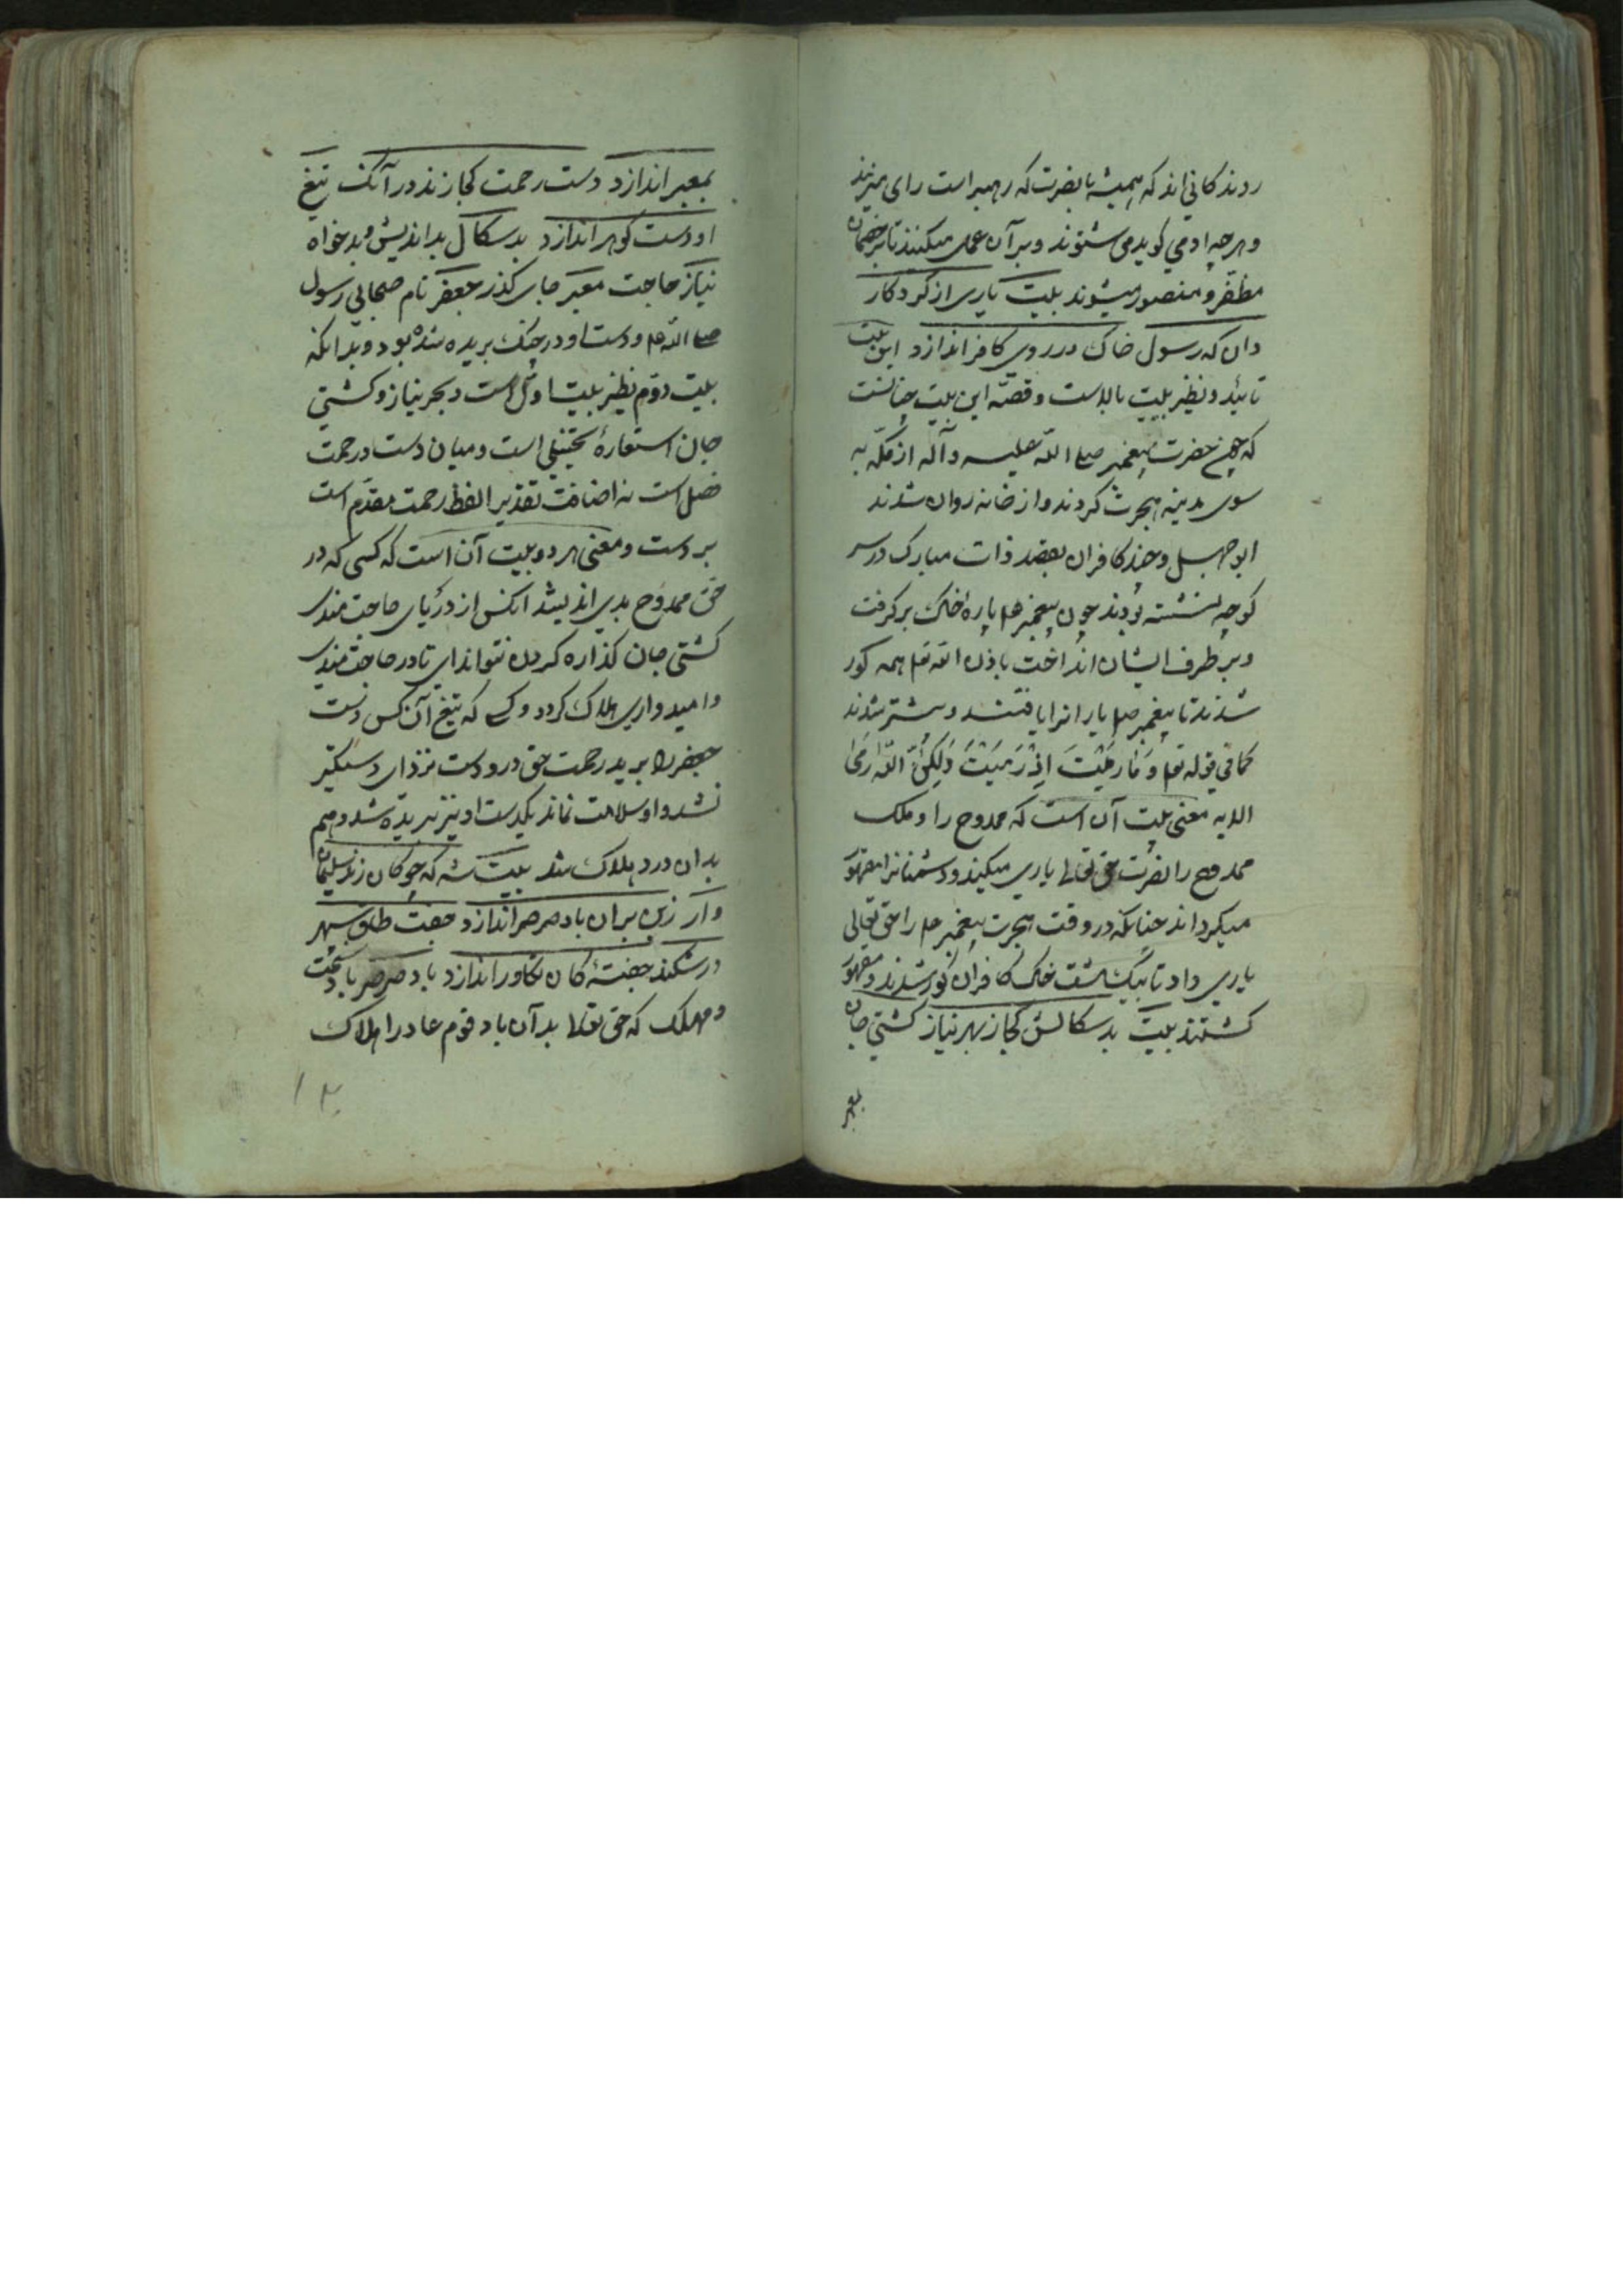 روندکانی اند که همیشه با نصرت که رهبر است رای میزنند
و هرچه او می کوید می شنوند و بر آن عمل میکنند تا بر خصمان
مظفر و منصور میشوند بیت یاری از کردکار
دان که رسول خاک در روی کافر اندازد این بیت
تائید و نظیر بیت بالاست و قصّه این بیت چنانست
که چون حضرت پیغمبر صلی الله علیه و آله از مکّه به
سوی مدینه هجرت کردند و از خانه روان شدند
ابو جهل و چند کافران بقصد ذات مبارک در سر
کوچه نشسته بودند چون پیغمبر علم پارهٔ خاک برکرفت
و بر طرف ایشان انداخت باذن الله تعم همه کور
شدند تا پیغمبر صلم یارانرا یافتند و شتر شدند
کما فی قوله تعم وَ مَا رَمَیْتَ اِذْ رَمَیْتَ وَلٰکِنَّ اللّٰهَ رَمَی
الایه معنی بیت آن است که ممدوح را و ملک
ممدوح را نصرت حق تعالی یاری میکند و دشمنانرا مقهور
میکرداند چنانکه در وقت هجرت پیغمبر علم را حق تعالی
یاری داد تا بیک مشت خاک کافران کور شدند و مقهور
کشتند بیت بدسکالش کجا ز بهر نیاز کشتی جان
بمعبر
بمعبر اندازد دست رحمت کجا زند در آنک تیغ
او دست کوهر اندازد بدسکال بداندیش و بدخواه
نیاز حاجت معبر جای کذر جعفر نام صحابی رسول
صلی الله علم و دست او در جنک بریده شده بود و بدانکه
بیت دوم نظیر بیت اوّل است و بحر نیاز و کشتی
جان استعارهٔ تخییلی است و میان دست و رحمت
فصل است نه اضافت تقدیر الفظ رحمت مقدّم است
بر دست و معنی هر دو بیت آن است که کسی که در
حق ممدوح بدی اندیشد انکس از دریای حاجتمندی
کشتی جان کذاره کردن نتواند ای تا در حاجتمندی
و امیدواری هلاک کردد و کسی که تیغ آن کس دست
جعفر را برید رحمت حق در و دست نزد ای دستکیر
نشد و او سلامت نماند یکدست او نیز بریده شد و هم
بدان درد هلاک شد بیت شه که چوکان زند سلیمان
وار زین بران باد صرصر اندازد جفت طاق سپهر
در شکند جفتهٔ کان تکاور اندازد باد صرصر باد سخت
و مهلک که حق تعالی بدآن باد قوم عاد را هلاک
۱۲